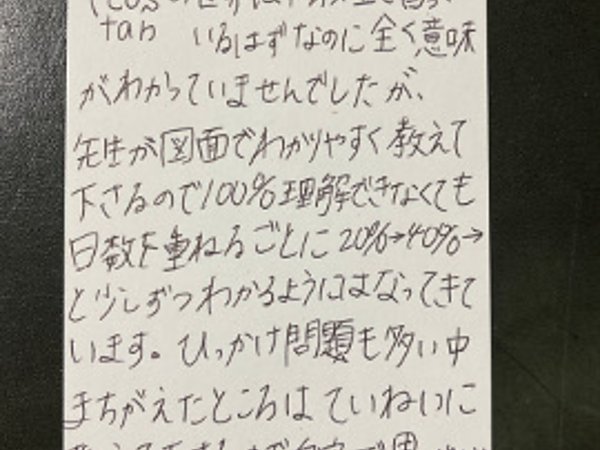 cos
tan いるはずなのに全く意味
がわかっていませんでしたが、
先生が図面でわかりやすく教えて
下さるので100%理解できなくても
日数を重ねるごとに20%→40%→
と少しずつわかるようにはなってきて
います。ひっかけ問題も多い中
まちがえたところはていねいに